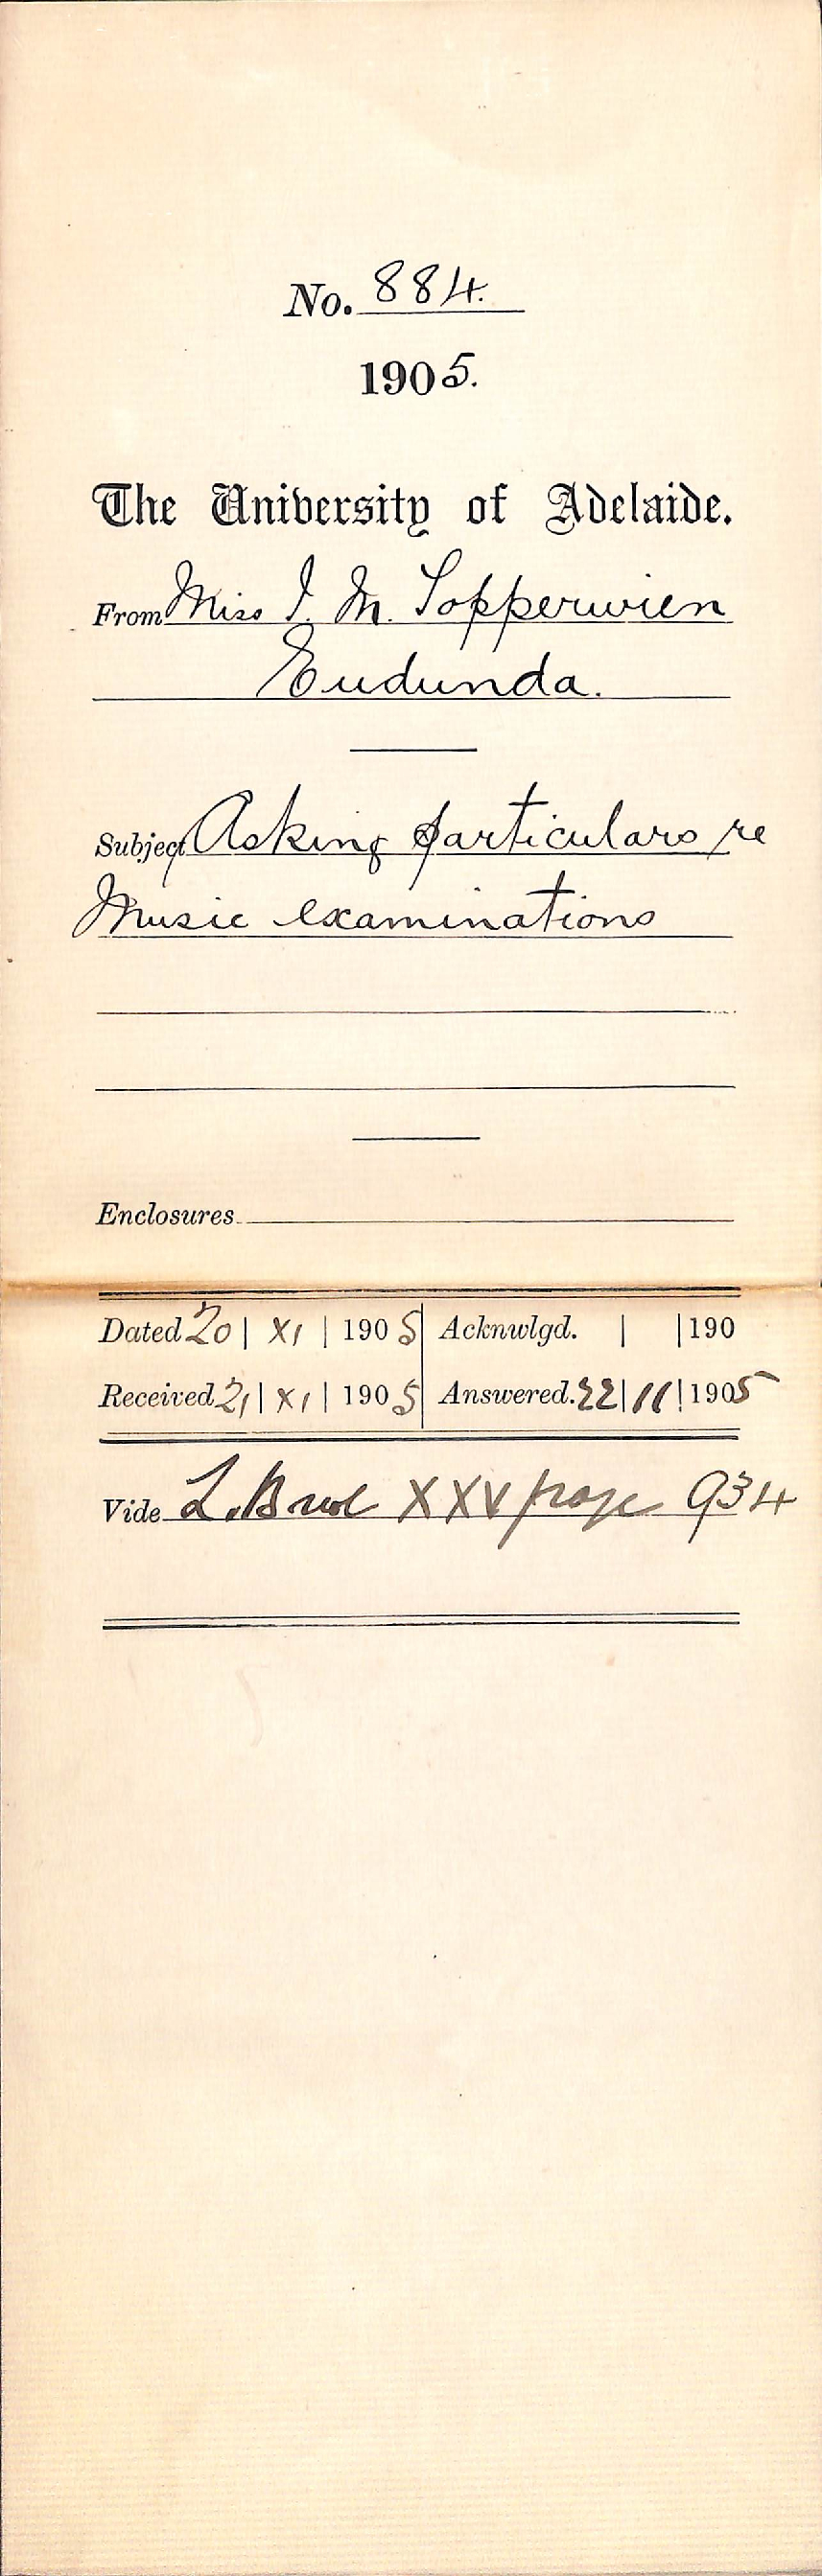 No. 884.
1905.
The University of Adelaide.
From Miss I. M. Topperwien
Eudunda.
Subject Asking particulars re
Music examinations
Enclosures
Dated 20 | XI | 1905 Acknwlgd. | | 190
Received 21 | XI | 1905 Answered. 22 | 11 | 1905
Vide L.B vol XXV page 934